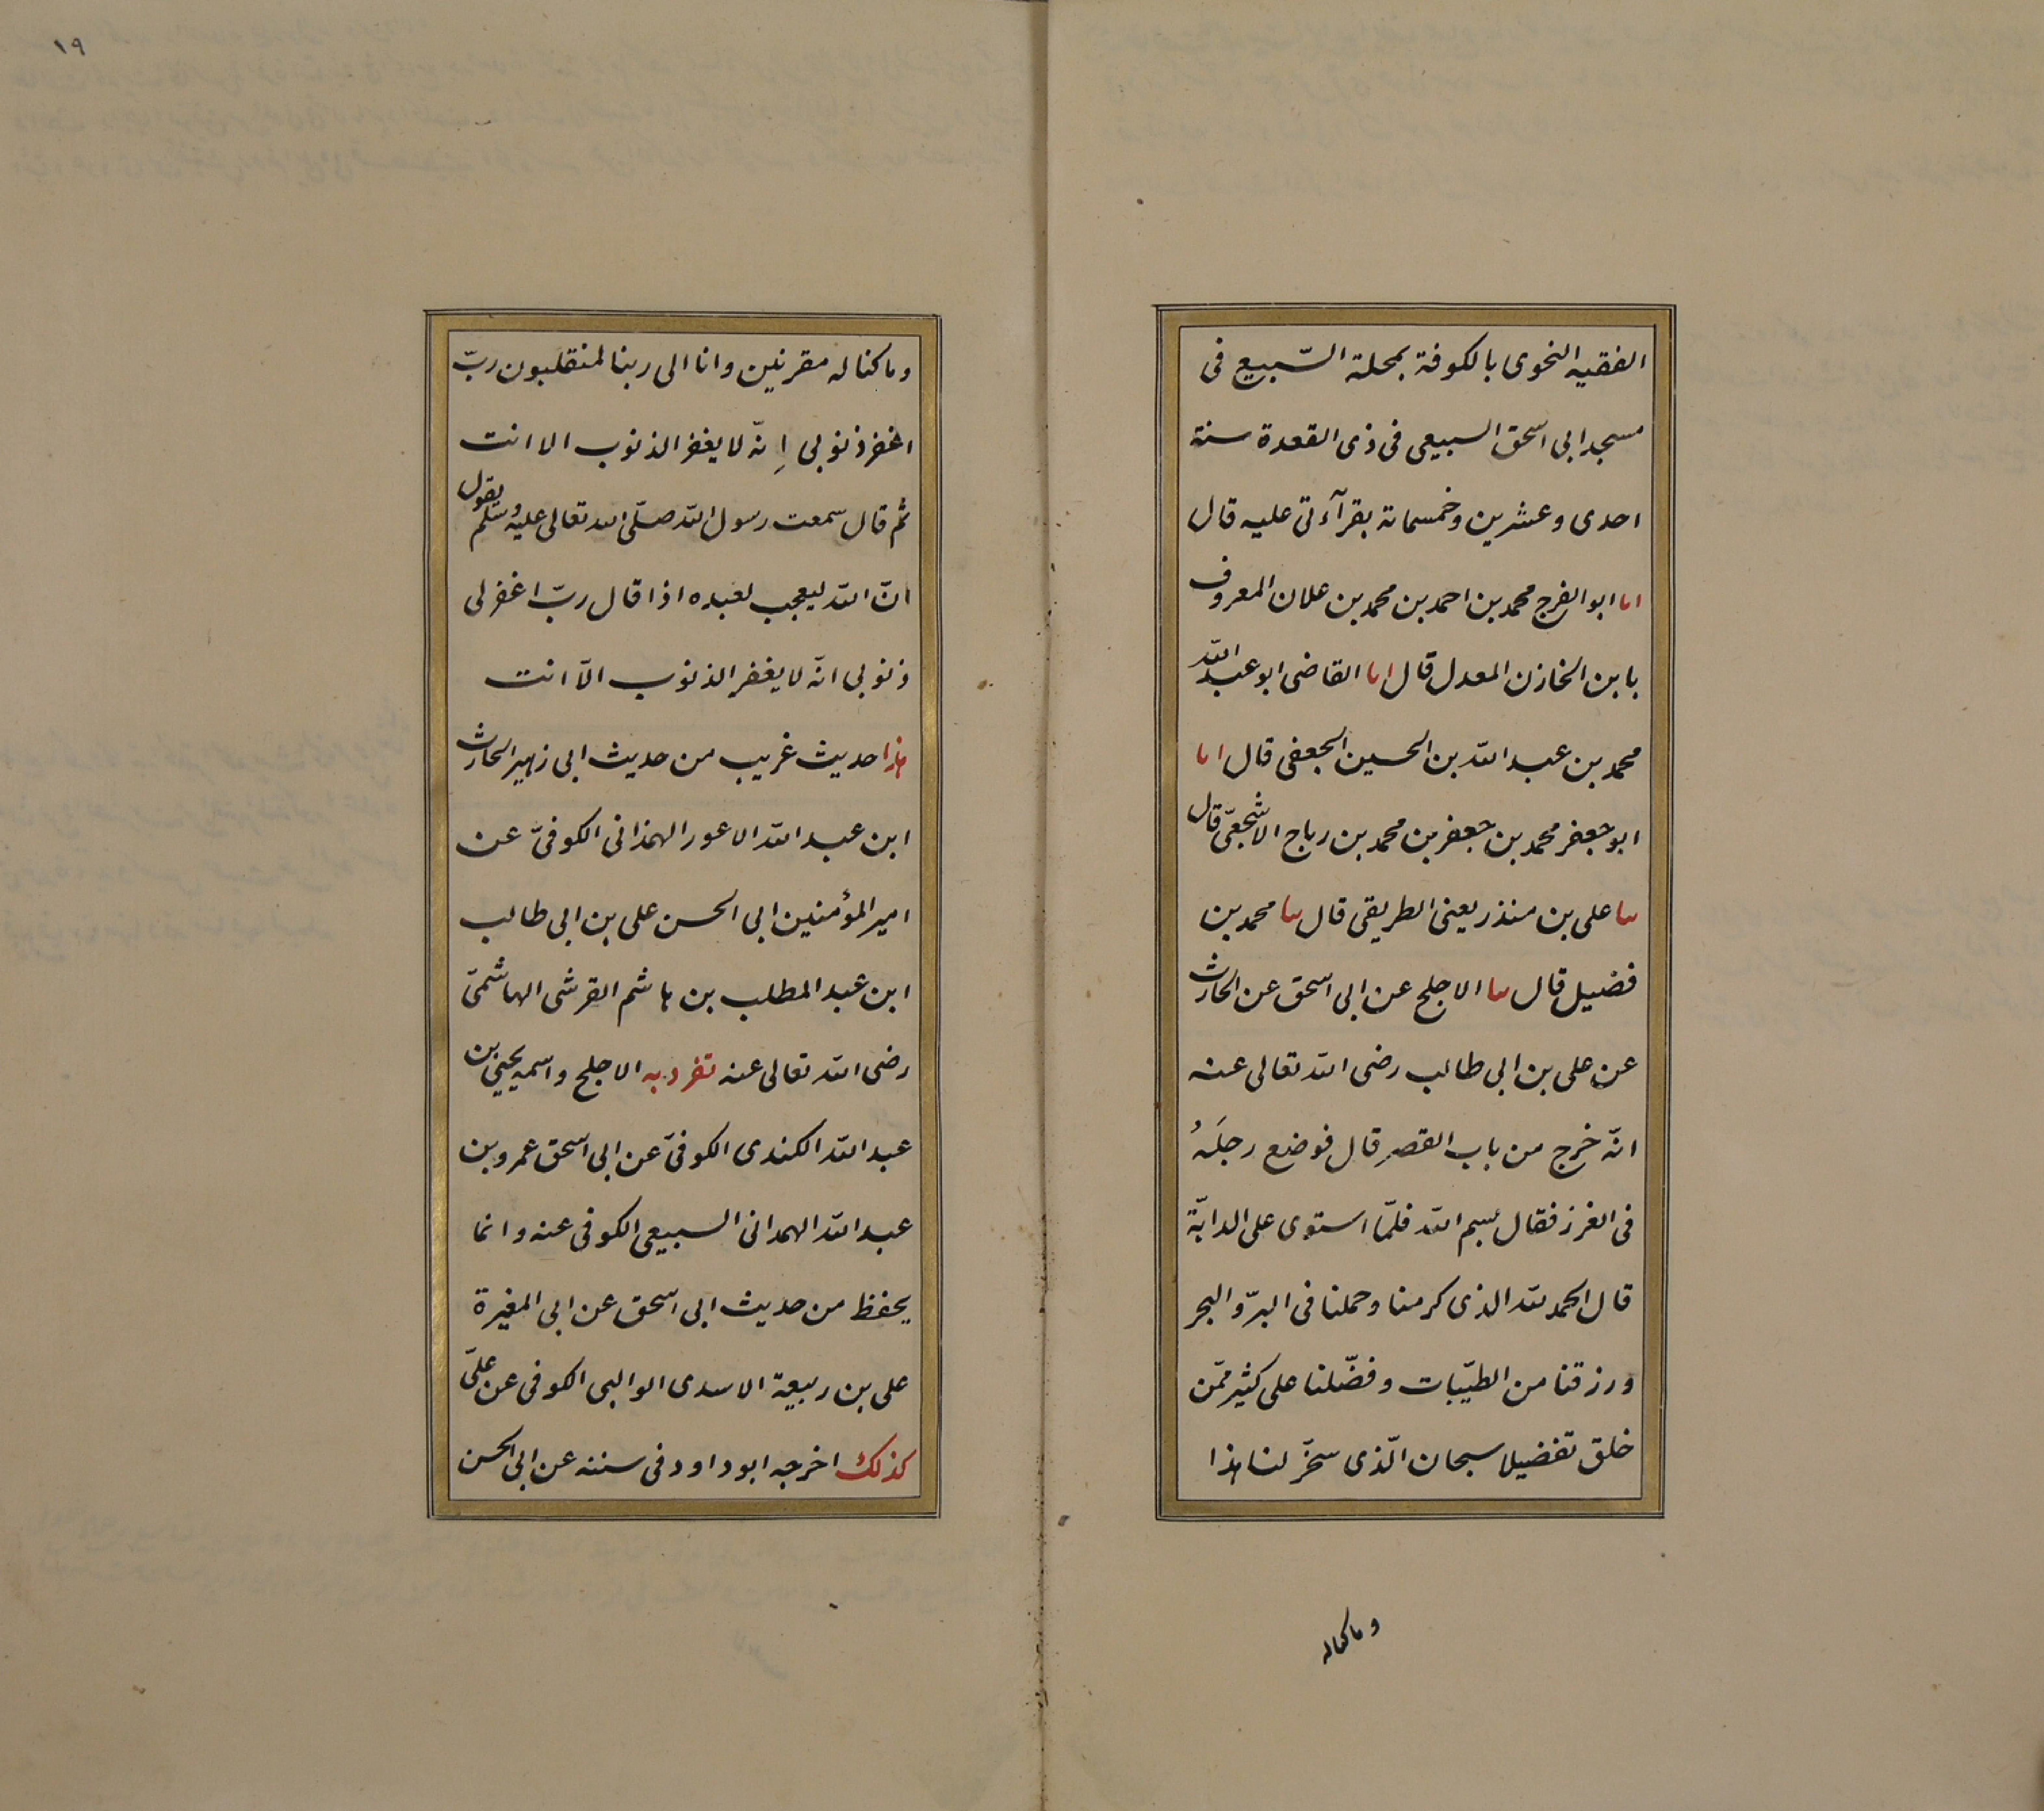 الفقيه النحوى بالكوفة بمحلة السّبيع فى
مسجد ابى اسحق السبيعى فى ذى القعدة سنة
احدى وعشرين وخمسمائة بقرآءتى عليه قال
انا ابو الفرج محمد بن احمد بن محمد بن علان المعروف
بابن الخازن المعدل قال انا القاضى ابو عبد الله
محمد بن عبد الله بن الحسين الجعفى قال انا
ابو جعفر محمد بن جعفر بن محمد بن رباح الاشجعىّ قال
ىىا على بن منذر يعنى الطريقى قال ىىا محمد بن
فضيل قال ىىا الاجلح عن ابى اسحق عن الحارث
عن على بن ابى طالب رضى الله تعالى عنه
انّه خرج من باب القصر قال فوضع رجلَهُ
فى الغرز فقال بسم الله فلمّا استوى على الدابّة
قال الحمد لله الذى كرمنا وحملنا فى البرّ والبحر
ورزقنا من الطيّبات وفضّلنا على كثير ممّن
خلق تفضيلا سبحان الّذى سخّر لنا هذا
وما كنا له
١٩
وما كنا له مقرنين وانا الى ربنا لمنقلبون ربّ
اغفر ذنوبى اِنّه لا يغفر الذنوب الا انت
ثم قال سمعت رسول الله صلّى الله تعالى عليه وسلم يقول
انّ الله ليعجب لعبده اذا قال ربّ اغفر لى
ذنوبى انّه لا يغفر الذنوب الّا انت
هذا حديث غريب من حديث ابى زهير الحارث
ابن عبد الله الاعور الهمذانى الكوفىّ عن
امير المؤمنين ابى الحسن على بن ابى طالب
ابن عبد المطلب بن هاشم القرشى الهاشمىّ
رضى الله تعالى عنه تفرد به الاجلح واسمه يحيى بن
عبد الله الكندى الكوفىّ عن ابى اسحق عمرو بن
عبد الله الهمدانى السبيعى الكوفى عنه وانما
يحفظ من حديث ابى اسحق عن ابى المغيرة
على بن ربيعة الاسدى الوالبى الكوفى عن علىّ
كذلك اخرجه ابو داود فى سننه عن ابى الحسن